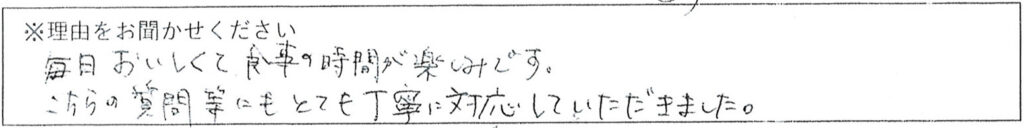 ※理由をお聞かせください
毎日おいしくて食事の時間が楽しみです。
こちらの質問等にもとても丁寧に対応していただきました。